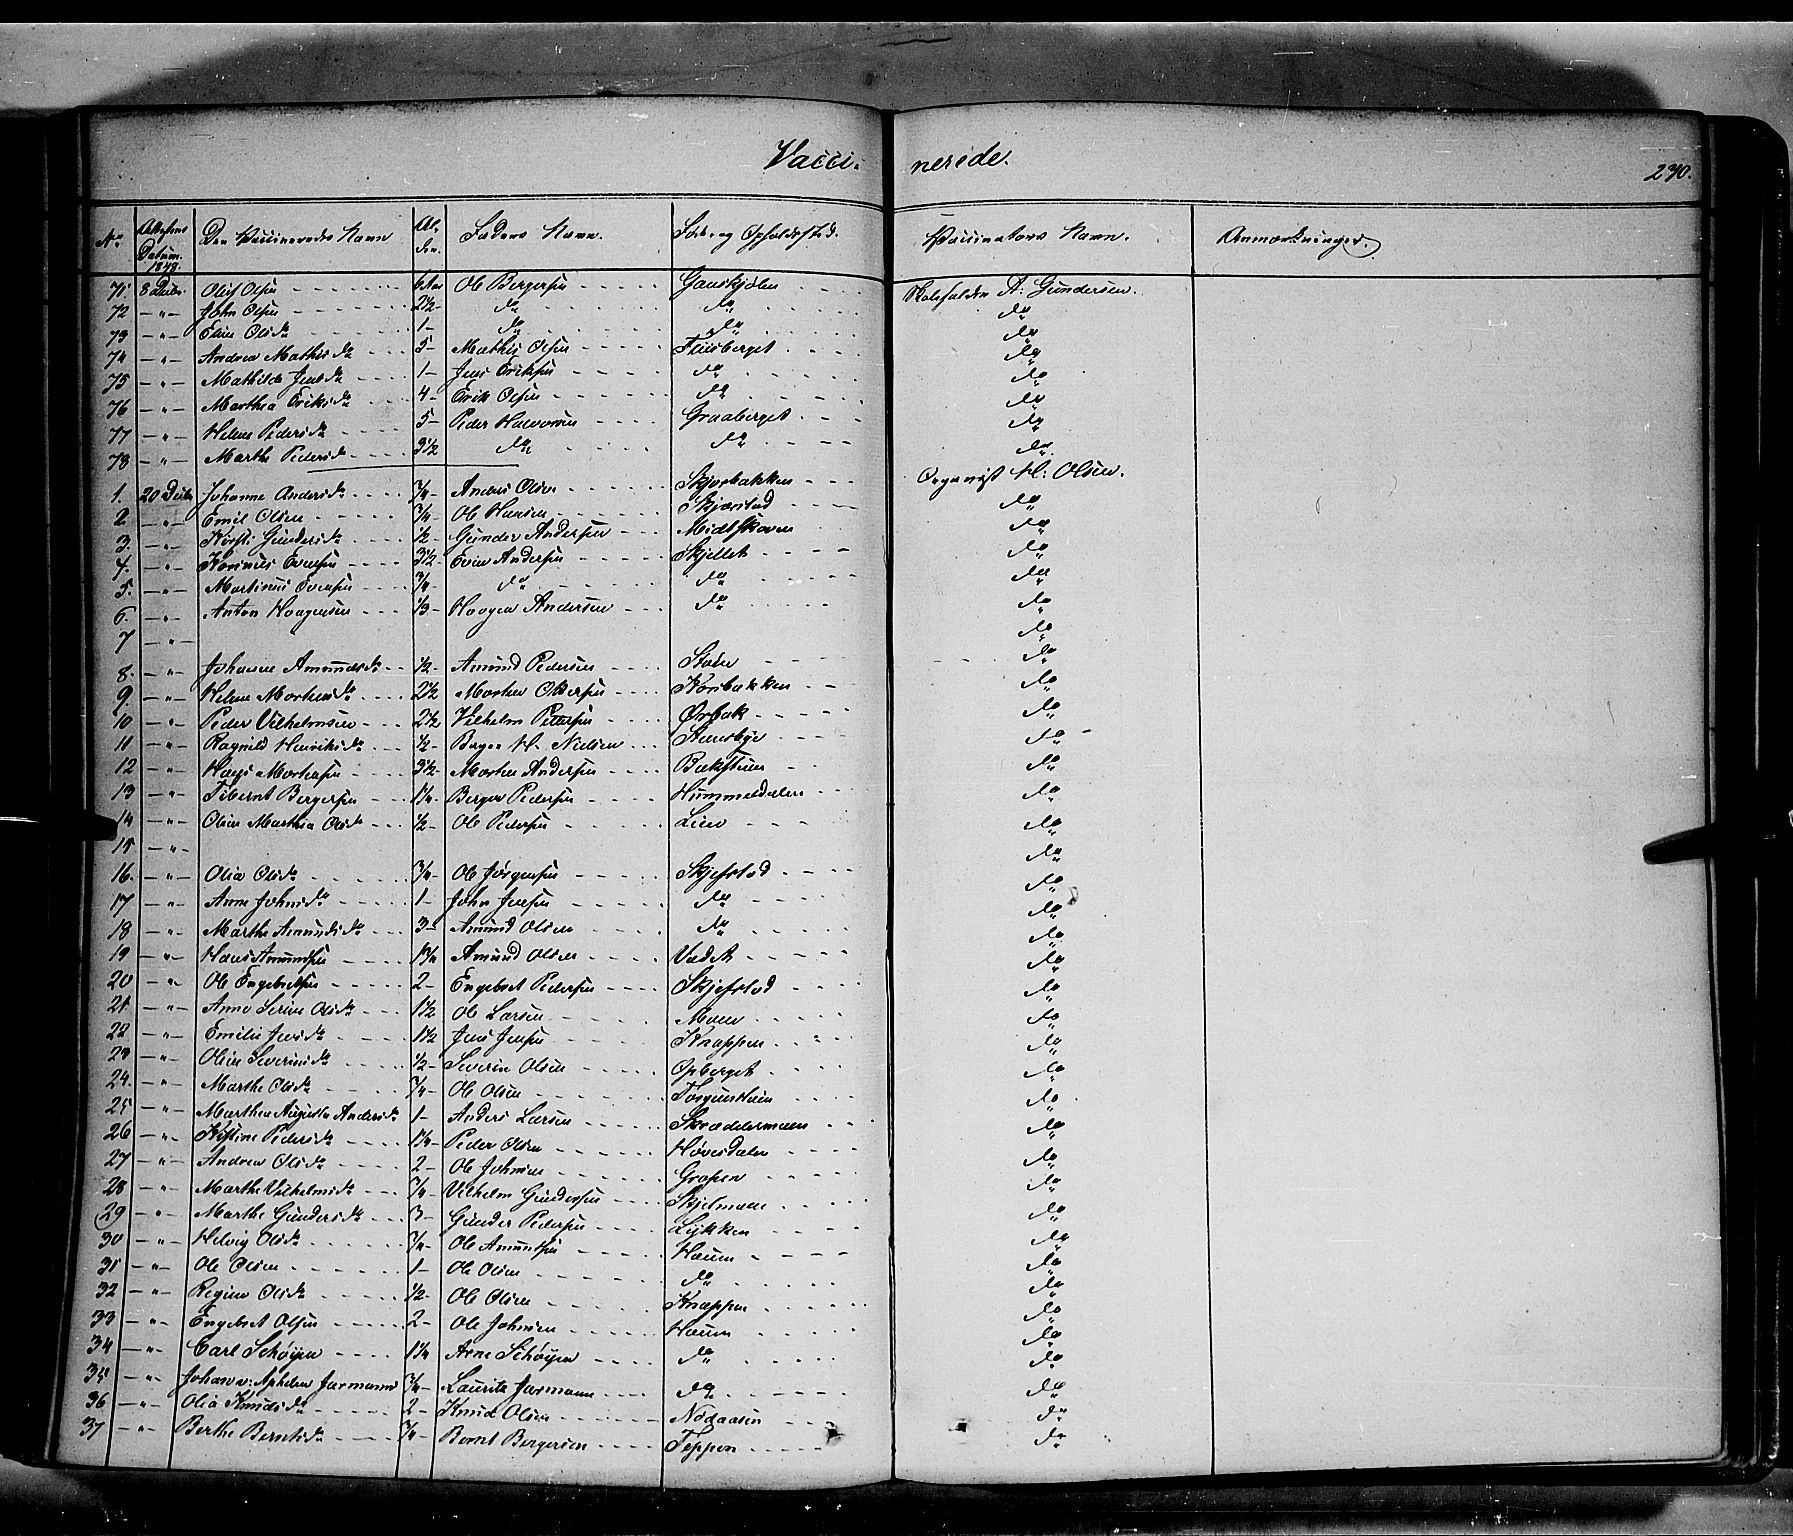 Vacci- nerede.
230.
No Attestens Datum. 1848. Den Vaccineredes Navn Al-der. Faders Navn. Føde- og Opholdssted. Vaccinators Navn. Anmærkninger.
71. 8 Decbr. Oluf Olsen 6 Aar Ole Bergersen Gauskjølen Skoleholder A. Gundersen.
72 - " - John Olsen 2 1/2 do do do
73 - " - Eline Olsdr 1 - do do do
74 - " - Andrea Mathisdr 5 - Mathis Olsen Fuisberget do
75 - " - Mathilde Jensdr 1 - Jens Eriksen do do
76 - " - Marthea Eriksdr 4 - Erik Olsen do do
77 - " - Helene Pedersdr 5 - Peder Halvorsen Graaberget do
78 - " - Marthe Pedersdr 3 1/2 do do do
1. 20 Decbr Johanne Andersdr 3/4 - Anders Olsen Skjorbakken Organist H. Olsen.
2 - " - Emil Olsen 3/4 - Ole Hansen Skjærstad do
3. - " - Kirsti Gundersdr 1/2 - Gunder Andersen Midtskoven do
4. - " - Kornelis Evensen 3 1/2 Even Andersen Skjellet do
5. - " - Martinus Evensen 3/4 do do do
6. - " - Anton Haagensen 1/3 - Haagen Andersen do do
7 - " - do
8. - " - Johanne Amundsdr 1/2 - Amund Pedersen Stølen do
9. - " - Helene Mortensdr 2 1/2 - Morten Ottersen Korsbakken do
10 - " - Peder Vilhelmsen 2 1/2 Vilhelm Pettersen Ørbak do
11 - " - Ragnild Henriksdr 1/2 - Berger H. Nielsen Stensbye do
12 - " - Hans Mortensen 3 1/2 - Morten Andersen Bakstuen do
13 - " - Tibernt Bergersen 1 1/4 - Berger Pedersen Hummeldalen do
14 - " - Oline Marthea Olsdr 1/2 - Ole Pedersen Lien do
15 - " - do
16. - " - Olia Olsdr 3/4 - Ole Jørgensen Skjefstad do
17 - " - Anne Johnsdr 1 - John Jensen do do
18 - " - Marthe Amundsdr 3 - Amund Olsen do do
19 - " - Hans Amundsen 1 3/4 - Amund Olsen Vadet do
20 - " - Ole Engebretsen 2 - Engebret Pedersen Skjefstad do
21 - " - Anne Serine Olsdr 1 1/2 Ole Larsen Moen do
22 - " - Emilie Jensdr 1 1/2 Jens Jensen Knappen do
23 - " - Oline Severinsdr 1/2 - Severin Olsen Opberget do
24. - " - Marthe Olsdr 3/4 - Ole Olsen Torgunsheim do
25 - " - Marthea Augusta Andersdr 1 - Anders Larsen Skræddermoen do
26 - " - Kistine Pedersdr 1 1/4 - Peder Olsen Hovesdalen do
27 - " - Andrea Olsdr 2 - Ole Johnsen Grapen do
28 - " - Marthe Vilhelmsdr 3/4 - Vilhelm Gundersen Skjelmoen do
29 - " - Marthe Gundersdr 3 - Gunder Pedersen Lykken do
30 - " - Helvig Olsdr 3/4 - Ole Amundsen Hauen do
31 - " - Ole Olsen 1 - Ole Olsen do do
32 - " - Regine Olsdr 1/2 - Ole Olsen Knappen do
33 - " - Engebret Olsen 2 - Ole Johnsen Hauen do
34 - " - Carl Schøyen 1 1/4 Arne Schøyen do do
35 - " - Johan v. Aphelen Jarmann 3/4 - Lauritz Jarmann do do
36 - " - Olia Knudsdr 2 - Knud Olsen Nodaasen do
37 - " - Berthe Berntsdr 3/4 - Bernt Bergersen Teppen do